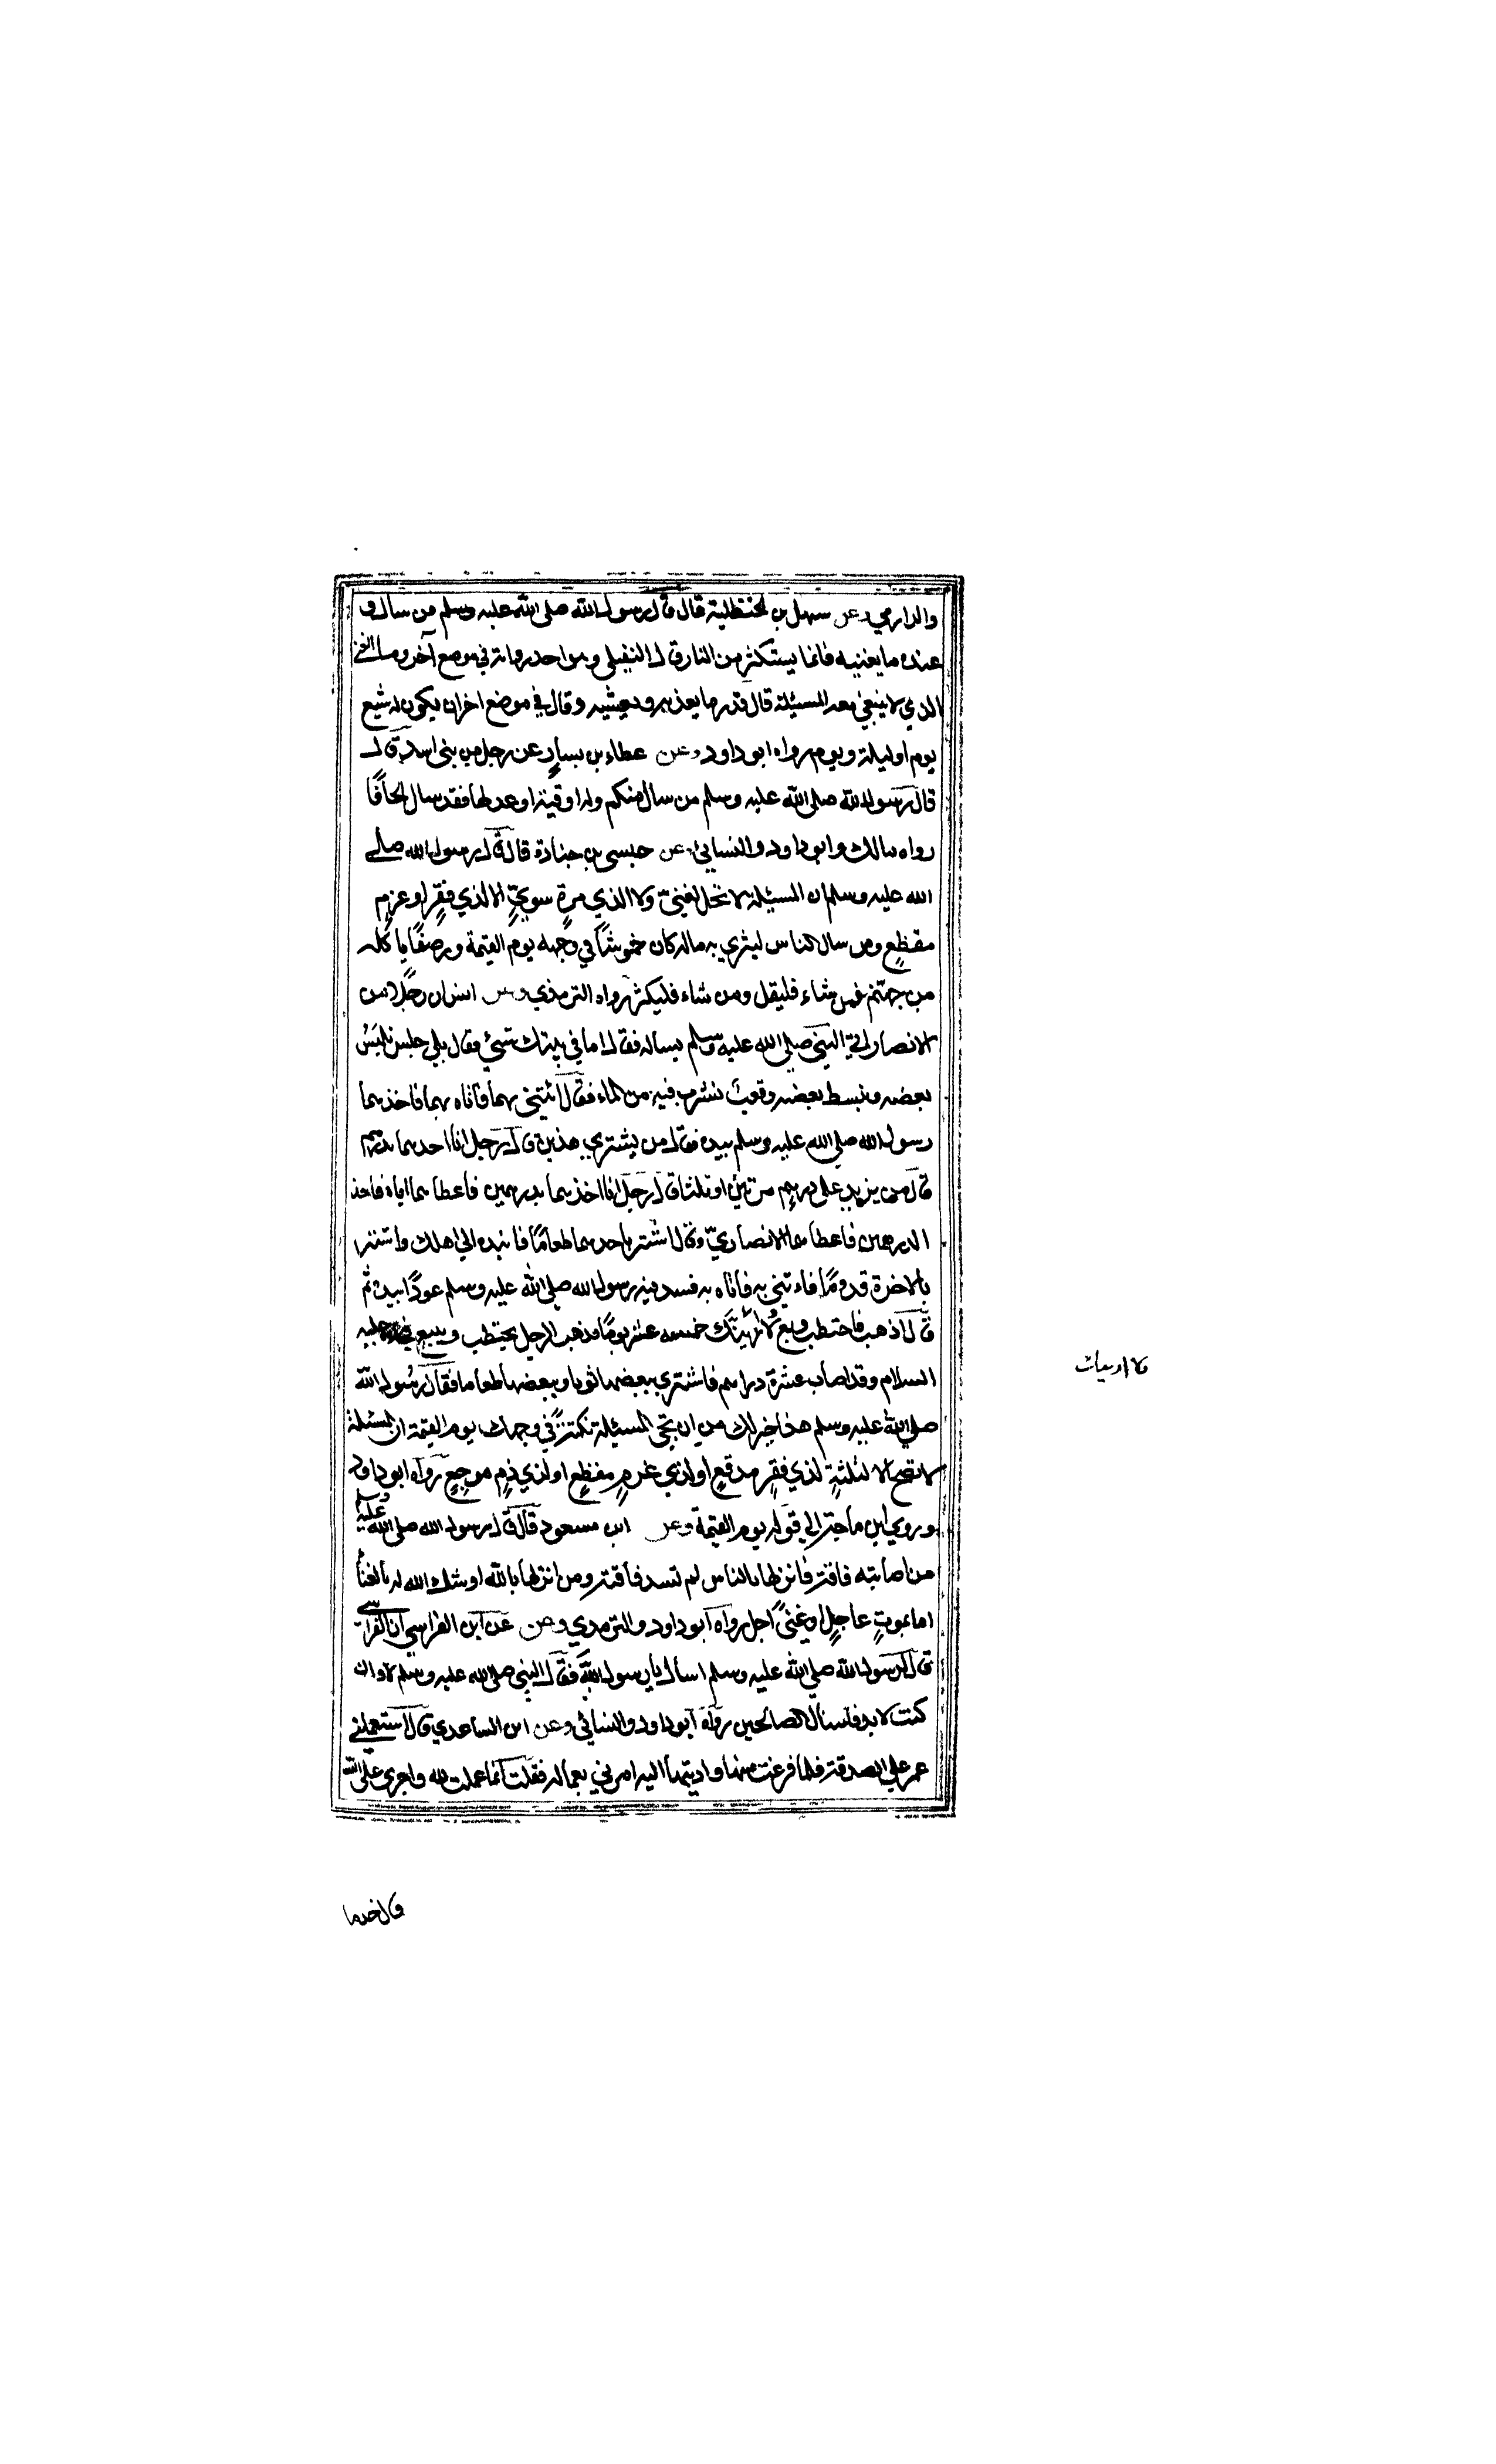 والدارمي وعن سهل بن الحنظلية قال قال رسول الله صلى الله عليه وسلم من سال و
عنده ما يغنيه فانما يستكثر من النار قال النفيلي وهو احد رواته في موضع آخر وما الغنى
الذي لا ينبغي معه المسئلة قال قدر ما يغذيه ويعشيه وقال في موضع اخر ان يكون له شبع
يوم او ليلة ويوم رواه ابو داود وعن عطاء بن يسار عن رجل من بني اسد قال
قال رسول الله صلى الله عليه وسلم من سال منكم وله اوقية او عدلها فقد سال الحافًا
رواه مالك وابو داود والنسائي وعن حبشي بن جنادة قال قال رسول الله صلى
الله عليه وسلم ان المسئلة لا تحل لغني ولا الذي مرة سوي الا لذي فقر او غرم
مفظع ومن سال الناس ليثري به ماله كان خموشًا في وجهه يوم القيمة ورضفًا ياكله
من جهنم فمن شاء فليقل ومن شاء فليكثر رواه الترمذي وعن انس ان رجلا من
الانصار اتى النبي صلى الله عليه وسلم يساله فقال اما في بيتك شئ فقال بلى حلس نلبس
بعضه ونبسط بعضه وقعب نشرب فيه من الماء فقال ائتني بهما فاتاه بهما فاخذهما
رسول الله صلى الله عليه وسلم بيده فقال من يشتري هذين قال رجل انا اخذهما بدرهم
قال من يزيد على درهم مرتين او ثلثا قال رجل انا اخذهما بدرهمين فاعطاهما اياه فاخذ
الدرهمين فاعطاهما الانصاري وقال اشتر باحدهما طعامًا فانبذه الى اهلك واشتر
بالاخرة قدومًا فاءتني به فاتاه به فشد فيه رسول الله صلى الله عليه وسلم عودًا بيده ثم
قال اذهب فاحتطب وبع ولا ارينك خمسه عشر يومًا فذهب الرجل يحتطب ويبيع عليه
السلام وقد اصاب عشرة دراهم فاشترى ببعضها ثوبا وببعضها طعاما فقال رسول الله
صلى الله عليه وسلم هذا خير لك من ان تجئ المسئلة نكتة في وجهك يوم القيمة ان المسئلة
لا تصح الا لثلثة لذي فقر مدقع او لذي غرم مفظع او لذي دم موجع رواه ابو داود
وروى ابن ماجة الى قوله يوم القيمة وعن ابن مسعود قال قال رسول الله صلى الله عليه وسلم
من اصابته فاقة فانزلها بالناس لم تسد فاقته ومن انزلها بالله اوشك الله له بالغنا
اما بموت عاجل او غنىً اجل رواه ابو داود والترمذي وعن عن ابن الفراسي ان الفراسي
قال لرسول الله صلى الله عليه وسلم اسال يا رسول الله فقال النبي صلى الله عليه وسلم لا وان
كنت لا بد فلسال الصالحين رواه ابو داود والنسائي وعن ابن الساعدي قال استعملني
عمر على الصدقة فلما فرغت منها واديتها اليه امرني بعمالة فقلت انما عملت لله واجري على الله
قال خذ ما